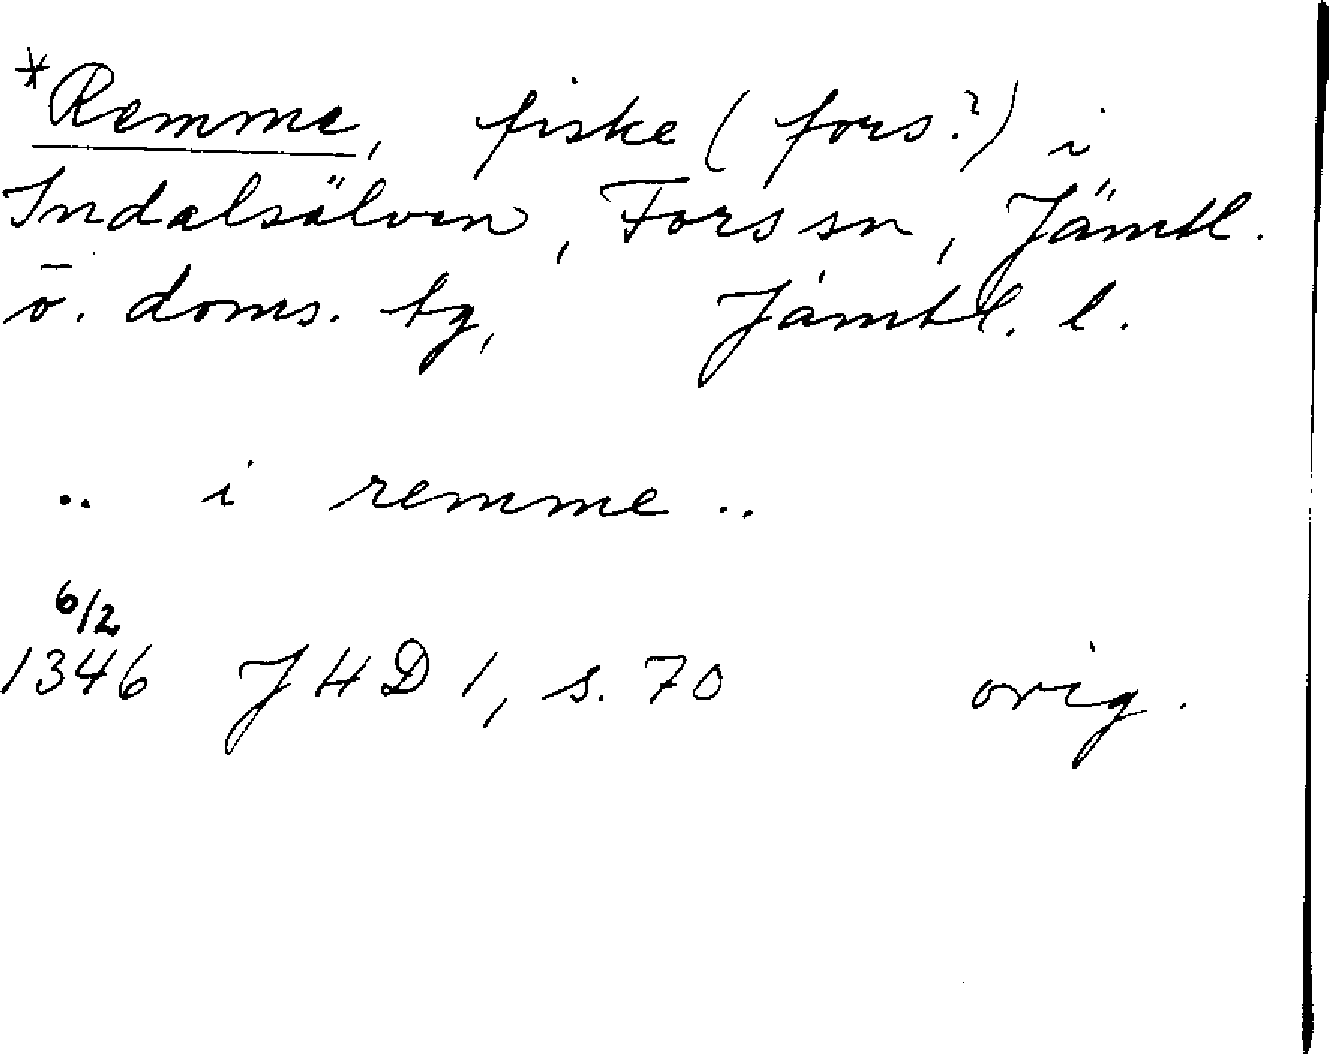 *Remme, fiske (fors?) i
Indalsälven, Fors sn, Jämtl.
ö. doms. tg, Jämtl. l.
.. i remme ..
6/2
1346 JHD 1, s. 70 orig.